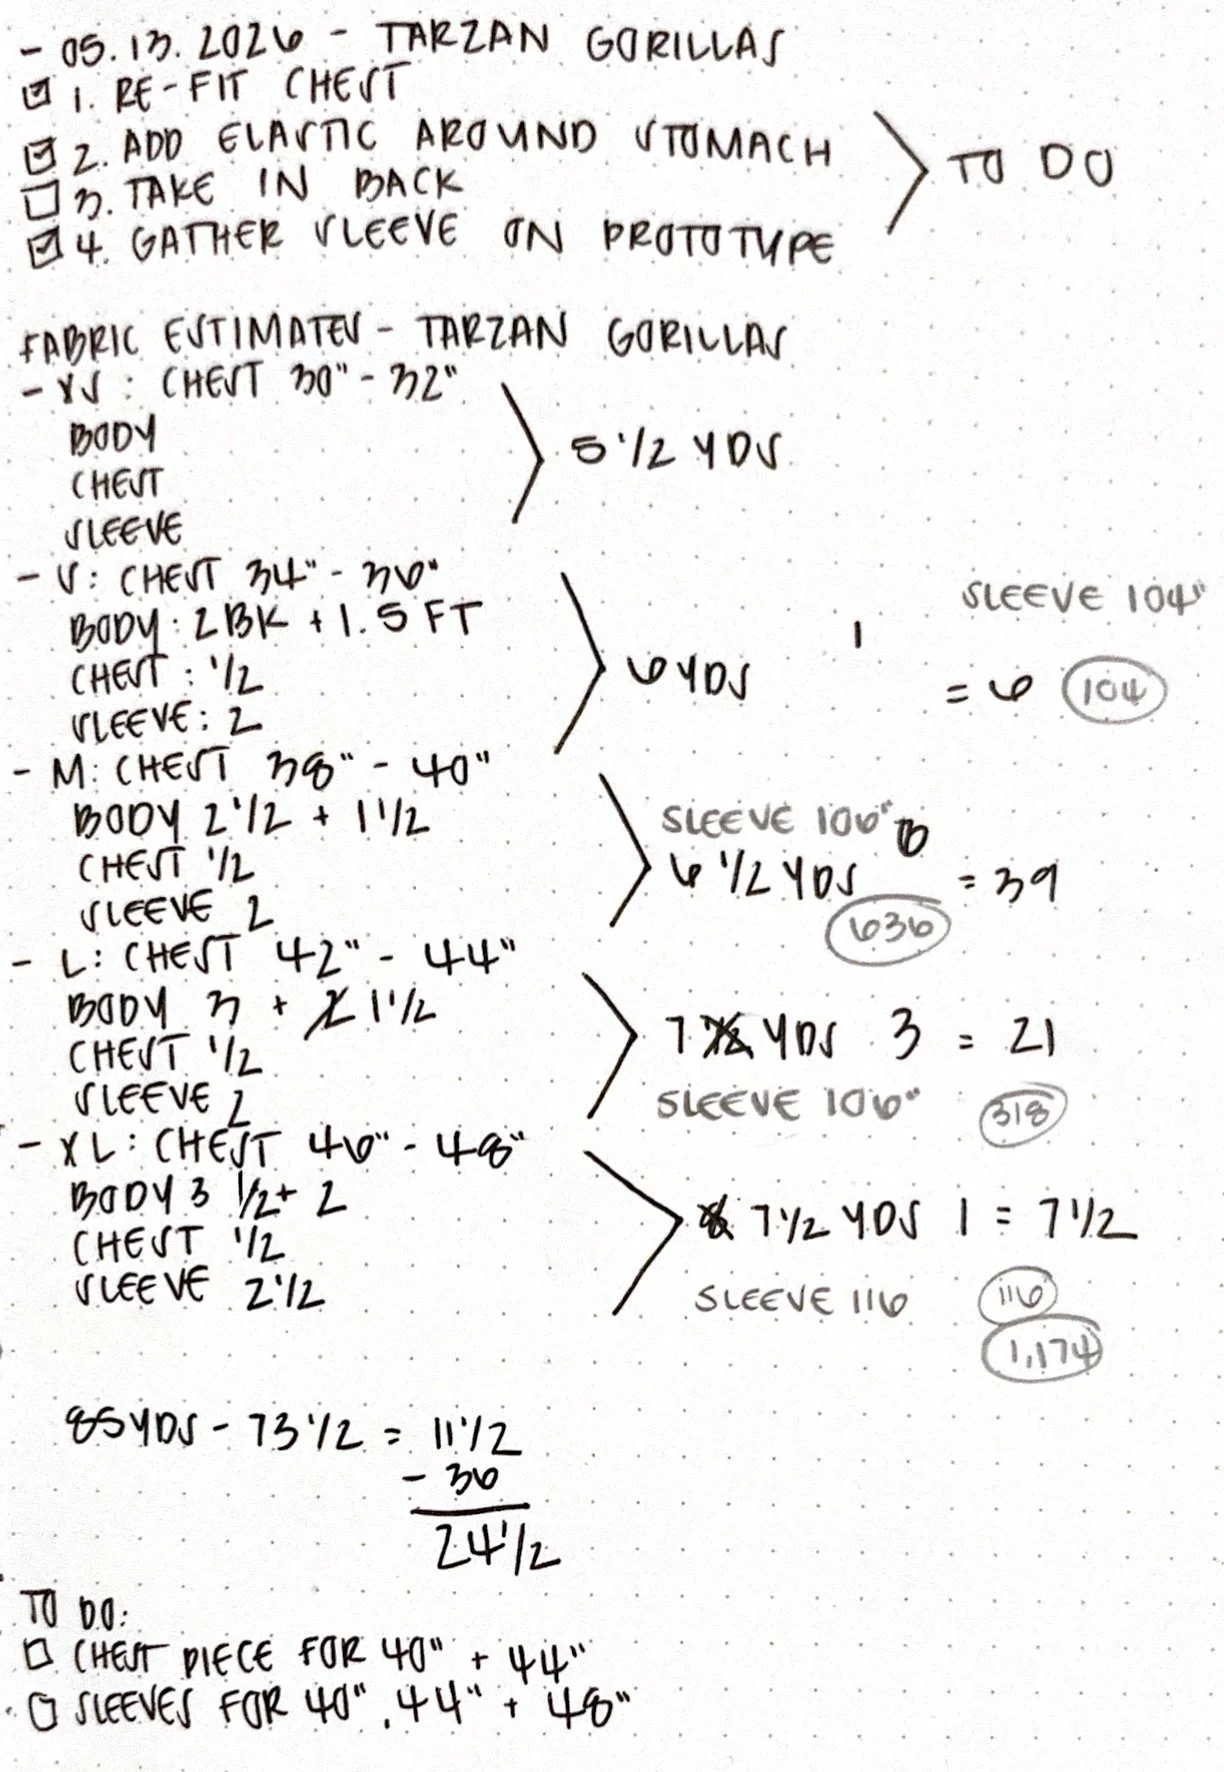 - 05.13.2026 - TARZAN GORILLAS
☑ 1. RE-FIT CHEST
☑ 2. ADD ELASTIC AROUND STOMACH
☐ 3. TAKE IN BACK
☑ 4. GATHER SLEEVE ON PROTOTYPE
TO DO
FABRIC ESTIMATES - TARZAN GORILLAS
- XS: CHEST 30" - 32"
BODY
CHEST
SLEEVE
5 1/2 YDS
- S: CHEST 34" - 36"
BODY: 2 BK + 1.5 FT
CHEST: 1/2
SLEEVE: 2
6 YDS 1 = 6 104
SLEEVE 104"
- M: CHEST 38" - 40"
BODY 2 1/2 + 1 1/2
CHEST 1/2
SLEEVE 2
SLEEVE 106"
6 1/2 YDS 6 = 39
636
- L: CHEST 42" - 44"
BODY 3 + 1 1/2
CHEST 1/2
SLEEVE 2
7 YDS 3 = 21
SLEEVE 106" 318
- XL: CHEST 46" - 48"
BODY 3 1/2 + 2
CHEST 1/2
SLEEVE 2 1/2
7 1/2 YDS 1 = 7 1/2
SLEEVE 116 116
1,174
85 YDS - 73 1/2 = 11 1/2
- 36
24 1/2
TO DO:
☐ CHEST PIECE FOR 40" + 44"
☐ SLEEVES FOR 40", 44" + 48"